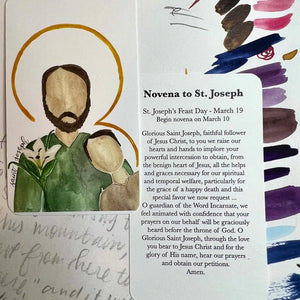 Novena to St. Joseph
St. Joseph's Feast Day - March 19
Begin novena on March 10
Glorious Saint Joseph, faithful follower
of Jesus Christ, to you we raise our
hearts and hands to implore your
powerful intercession to obtain, from
the benign heart of Jesus, all the helps
and graces necessary for our spiritual
and temporal welfare, particularly for
the grace of a happy death and this
special favor we now request ...
O guardian of the Word Incarnate, we
feel animated with confidence that your
prayers on our behalf will be graciously
heard before the throne of God. O
Glorious Saint Joseph, through the love
you bear to Jesus Christ and for the
glory of His name, hear our prayers
and obtain our petitions.
Amen.
this mountain,
from here to